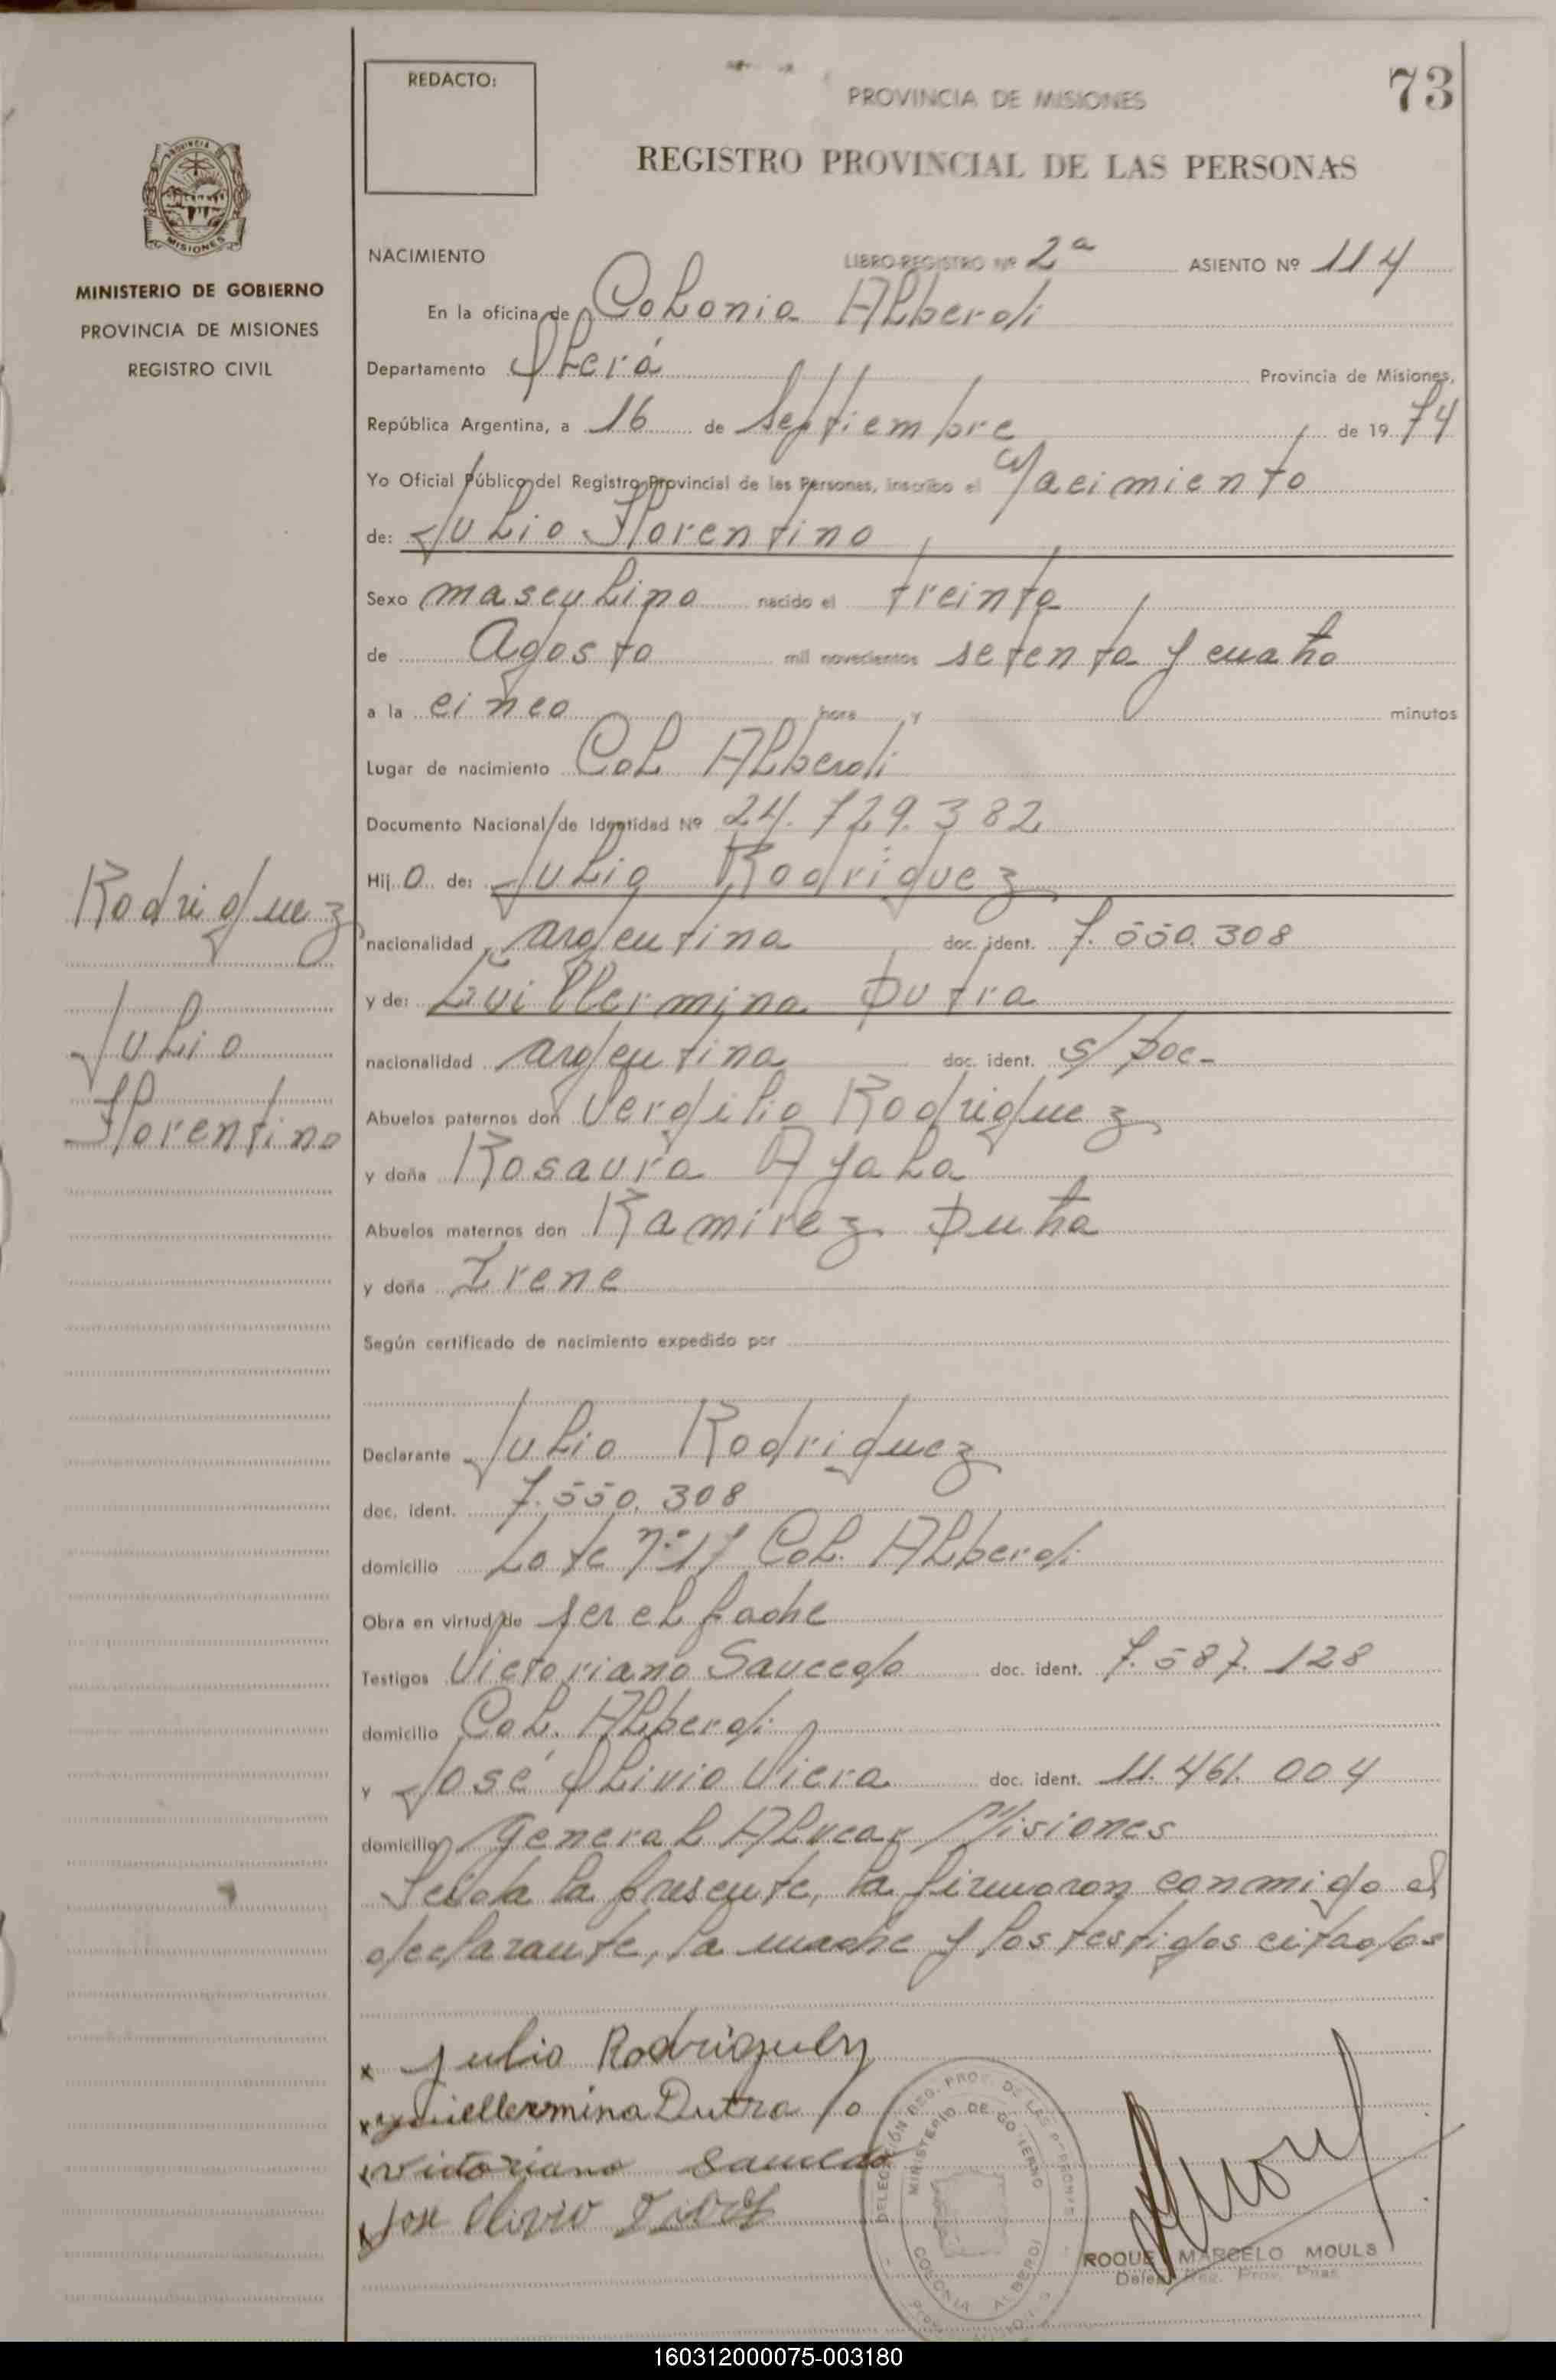 REDACTO:
PROVINCIA DE MISIONES
73
REGISTRO PROVINCIAL DE LAS PERSONAS
PROVINCIA DE
MISIONES
MINISTERIO DE GOBIERNO
PROVINCIA DE MISIONES
REGISTRO CIVIL
NACIMIENTO LIBRO-REGISTRO Nº 2ª ASIENTO Nº 114
En la oficina de Colonia Alberdi
Departamento Oberá Provincia de Misiones,
República Argentina, a 16 de Septiembre de 1974
Yo Oficial Público del Registro Provincial de las Personas, inscribo el Nacimiento
de: Julio Florentino
Sexo masculino nacido el treinta
de Agosto mil novecientos setenta y cuatro
a la cinco hora y minutos
Lugar de nacimiento Col Alberdi
Documento Nacional de Identidad Nº 24.729.382
Hijo de: Julio Rodriguez
nacionalidad argentina doc. ident. 7.550.308
y de: Guillermina Dutra
nacionalidad argentina doc. ident. s/Doc-
Abuelos paternos don Vergilio Rodriguez
y doña Rosaura Ayala
Abuelos maternos don Ramirez Dutra
y doña Irene
Según certificado de nacimiento expedido por
Declarante Julio Rodriguez
doc. ident. 7.550.308
domicilio Lote nº 17 Col. Alberdi
Obra en virtud de ser el padre
Testigos Victoriano Saucedo doc. ident. 7.587.128
domicilio Col. Alberdi
y José Olivio Viera doc. ident. 11.461.004
domicilio General Alvear Misiones
Leida la presente, la firmaron conmigo el
declarante, la madre y los testigos citados
Rodriguez
Julio
Florentino
x Julio Rodriguez
x Guillermina Dutra
x Victoriano Saucedo
x Jose Olivio
DELEGACIÓN REG. PROV. DE LAS PERSONAS
MINISTERIO DE GOBIERNO
COLONIA ALBERDI
ROQUE MARCELO MOULS
Deleg. Reg. Prov. Pnas
160312000075-003180